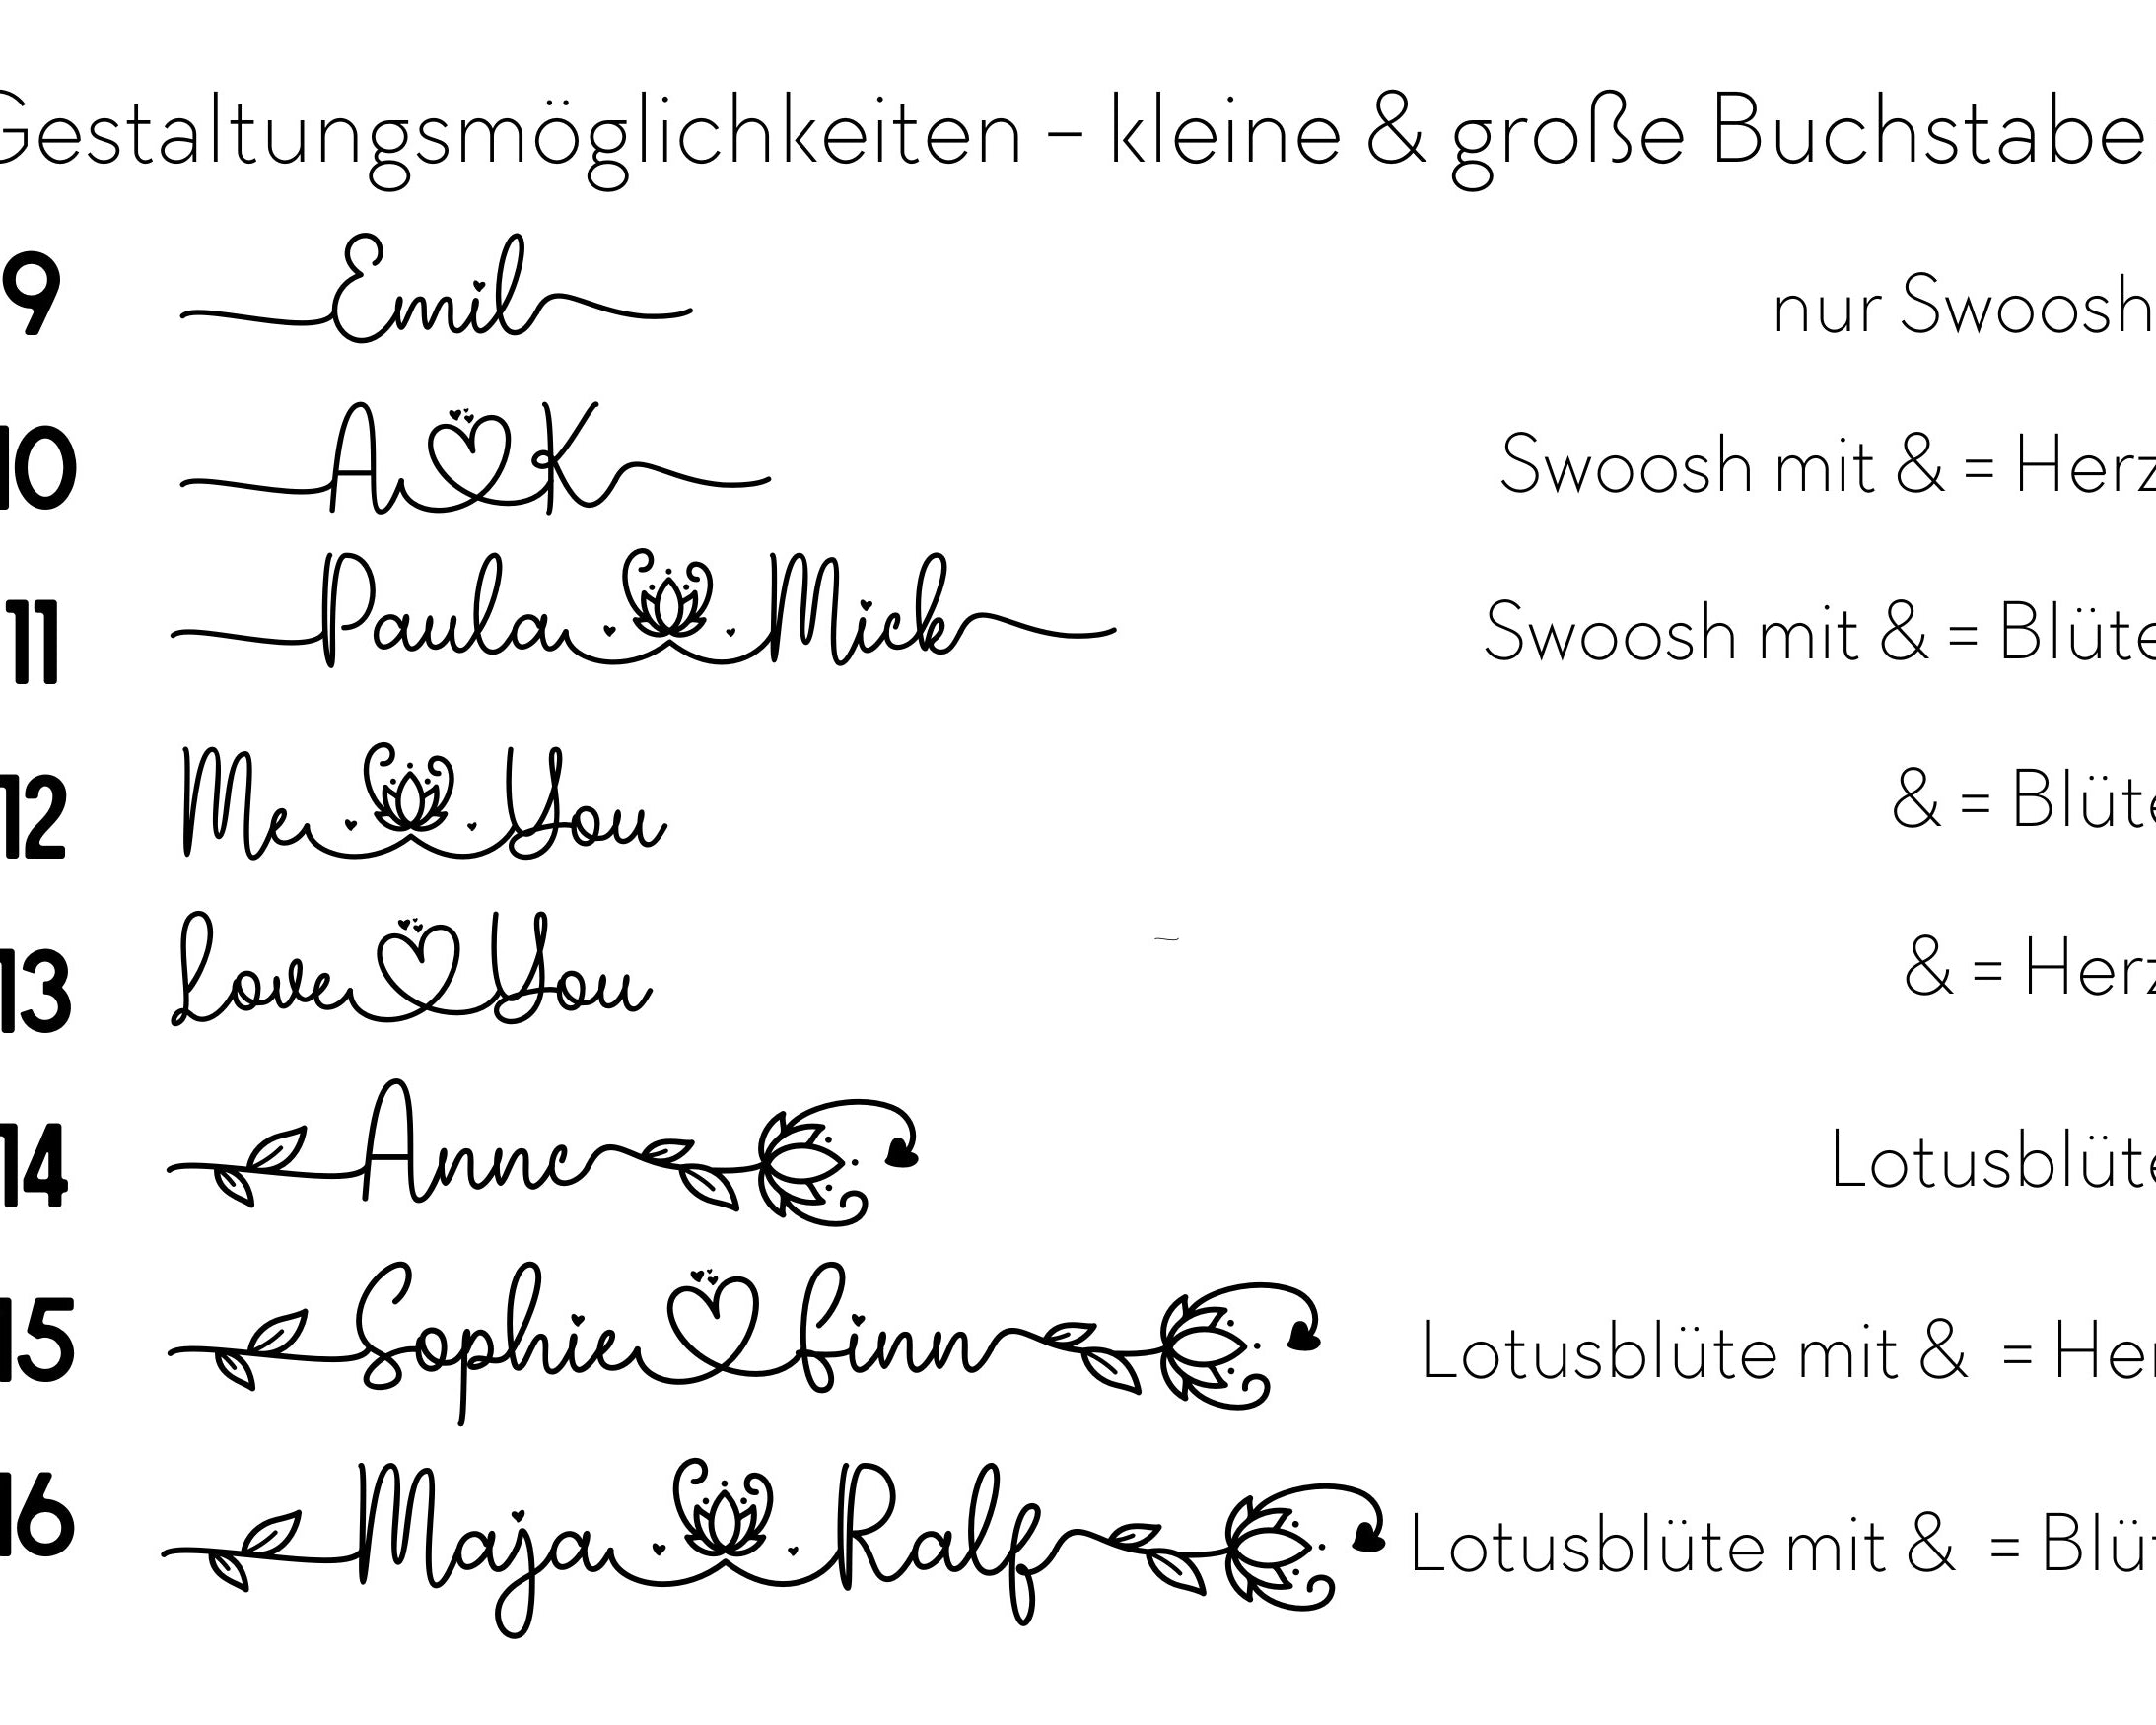 Gestaltungsmöglichkeiten – kleine & große Buchstabe
9 Emil nur Swoosh
10 A K Swoosh mit & = Herz
11 Paula Miek Swoosh mit & = Blüte
12 Me You & = Blüte
13 Love You & = Herz
14 Anne Lotusblüte
15 Sophie finn Lotusblüte mit & = Her
16 Maja Ralf Lotusblüte mit & = Blüt